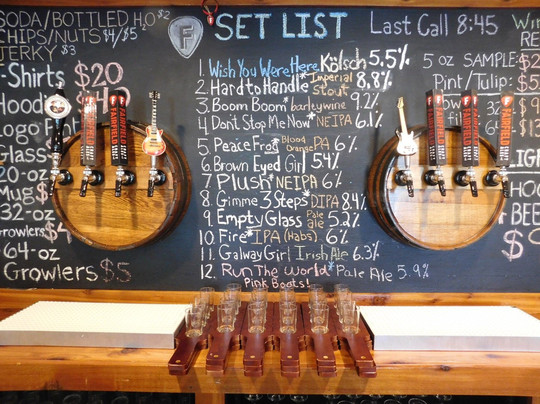 SODA/BOTTLED H2O $2
CHIPS/NUTS $4/$5
JERKY $3
T-Shirts $20
Hood
Logo
Glass
20 oz
Mug $
32-oz
Growlers $4
64-oz
Growlers $5
F
SET LIST
Last Call 8:45
1. Wish You Were Here Kölsch 5.5%
2. Hard to Handle* Imperial Stout 8.8%
3. Boom Boom* barleywine 9.2%
4. Don't Stop Me Now* NEIPA 6.1%
5. Peace Frog Blood Orange PA 6%
6. Brown Eyed Girl 5.4%
7. Plush* NEIPA 6%
8. Gimme 3 Steps* DIPA 8.4%
9. Empty Glass Pale ale 5.2%
10. Fire* IPA (Habs) 6%
11. Galway Girl Irish Ale 6.3%
12. Run The World* Pale Ale 5.9%
Pink Boots!
5 oz SAMPLE:
Pint/Tulip: $5
FANFELTER
FANFELTER
FANFELTER
FANFELTER